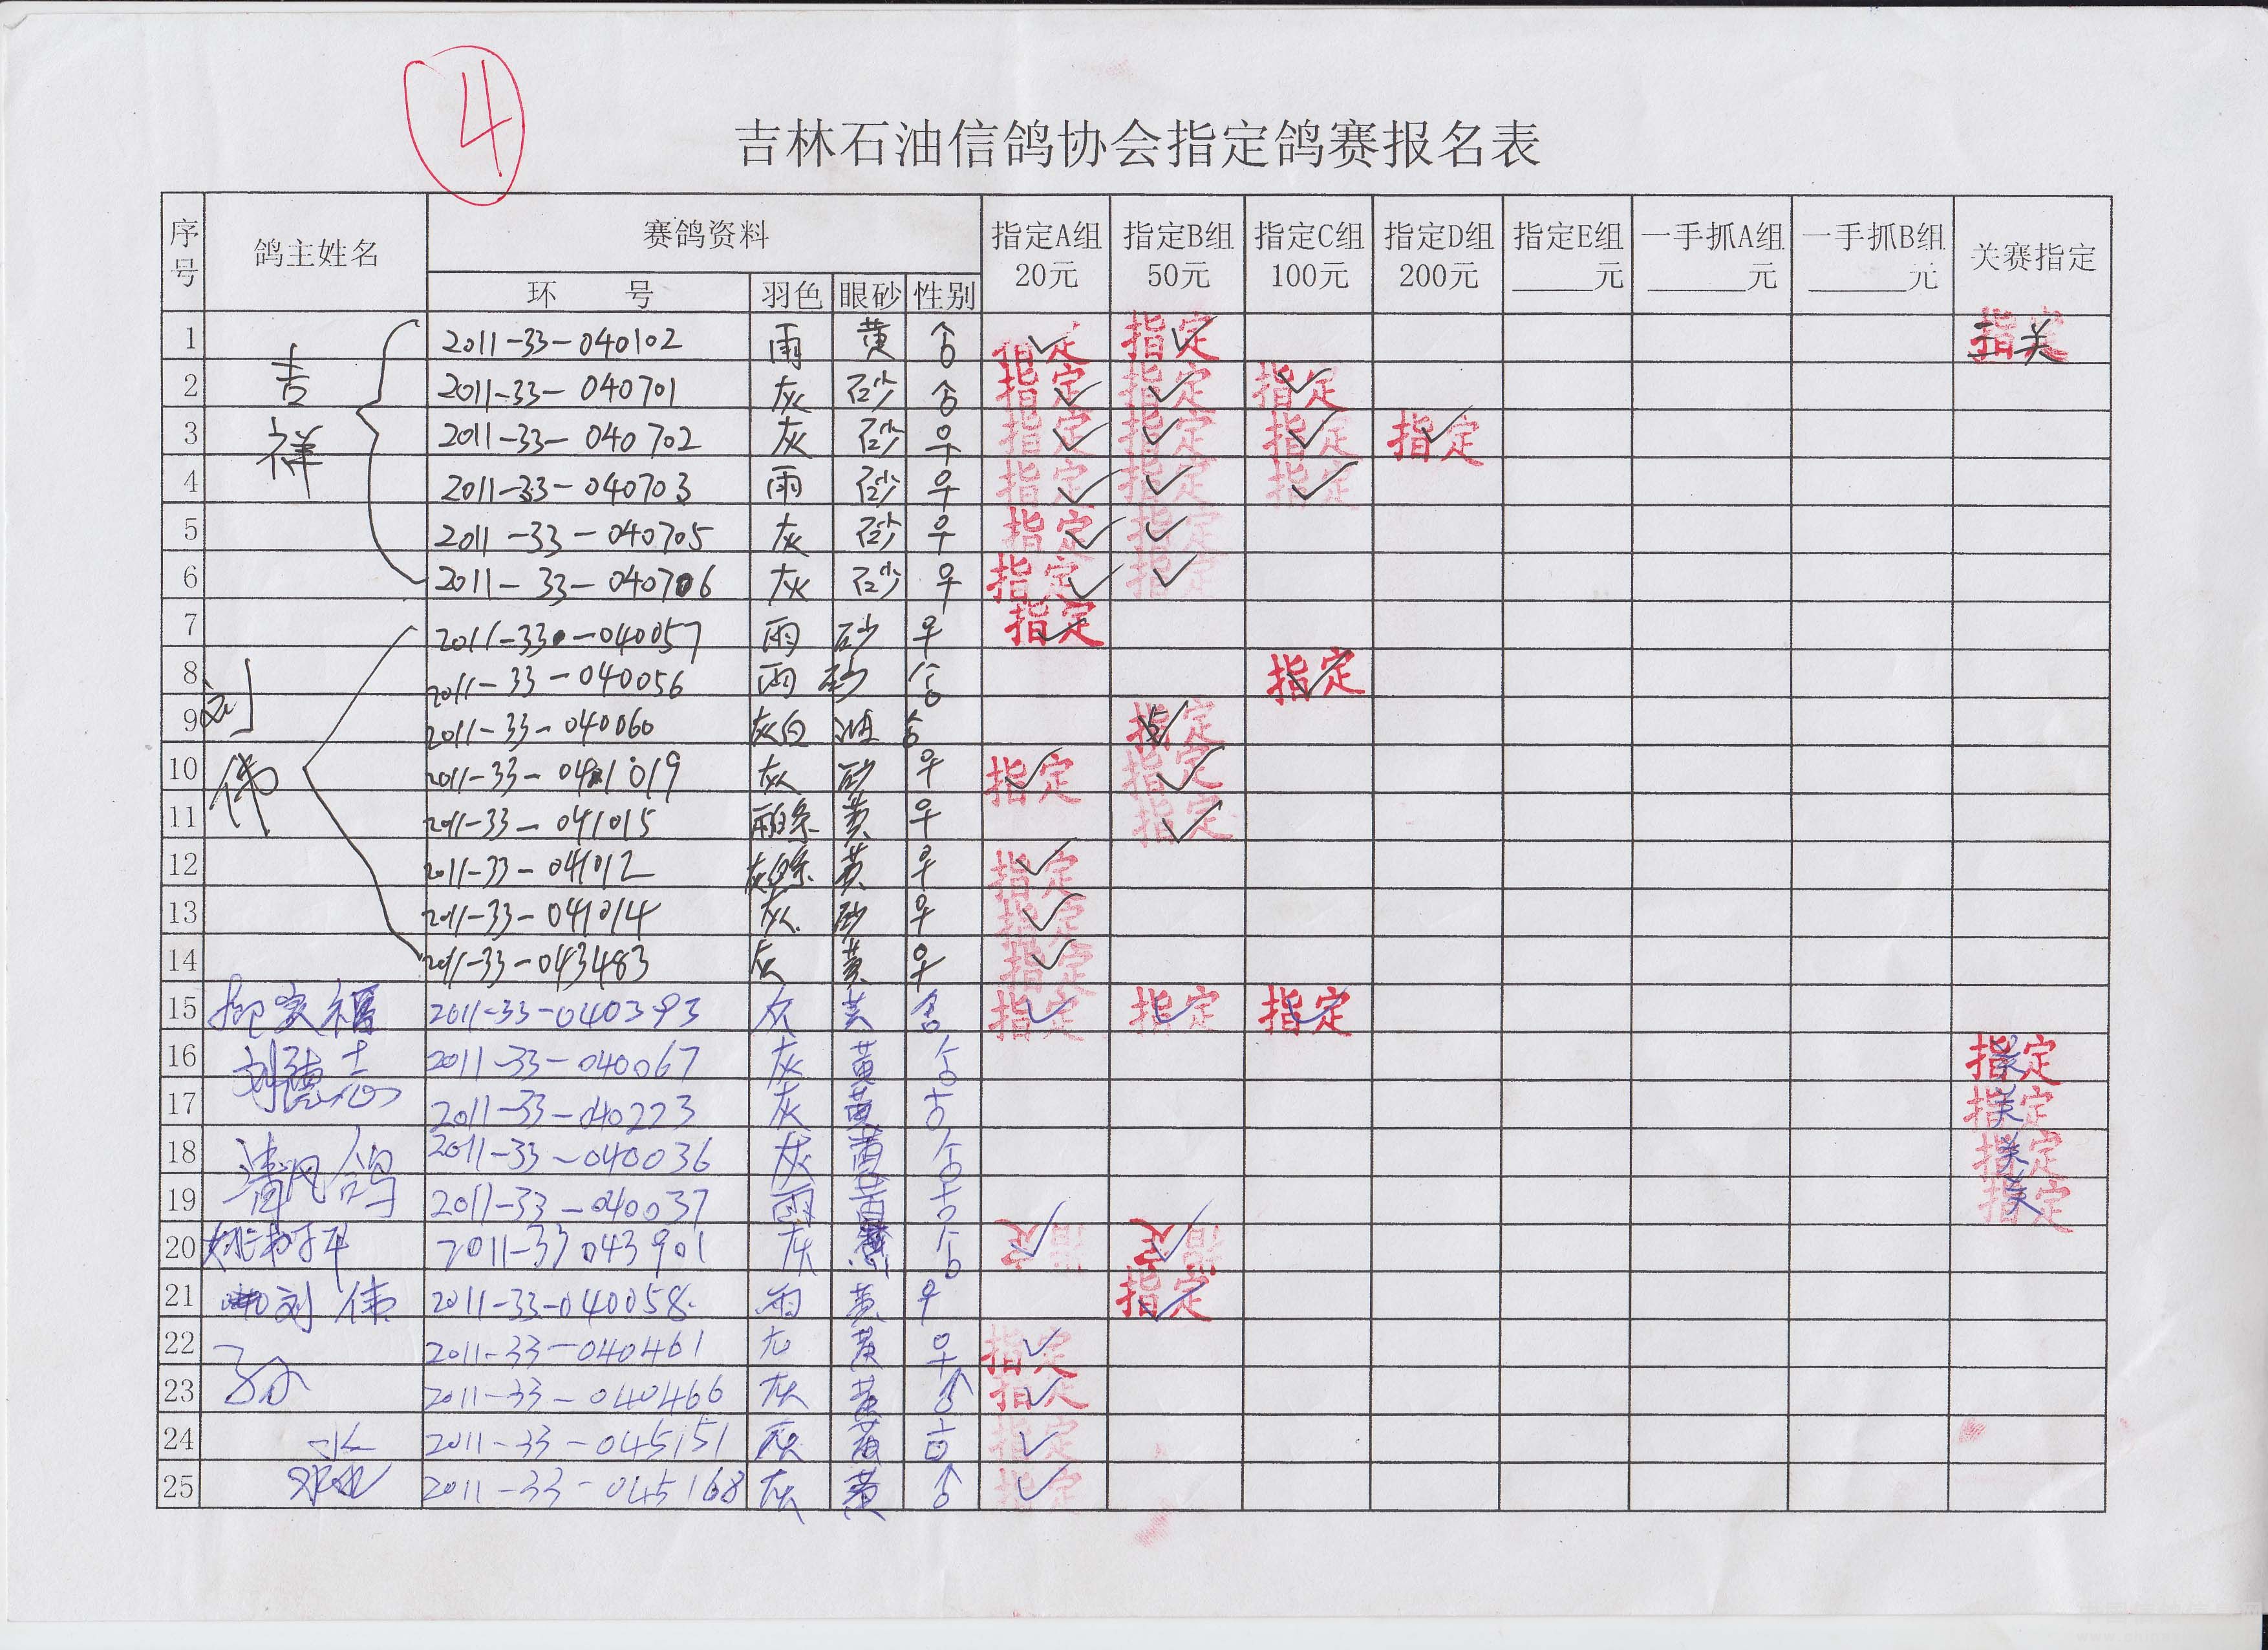 4
吉林石油信鸽协会指定鸽赛报名表
序号 鸽主姓名 赛鸽资料 指定A组 20元 指定B组 50元 指定C组 100元 指定D组 200元 指定E组 ____元 一手抓A组 ____元 一手抓B组 ____元 关赛指定
环 号 羽色 眼砂 性别
1 吉祥 2011-33-040102 雨 黄 ♂ 指定✓ 指定✓ 指定 三关
2 2011-33-040701 灰 砂 ♂ 指定✓ 指定✓ 指定✓
3 2011-33-040702 灰 砂 ♀ 指定✓ 指定✓ 指定✓ 指定✓
4 2011-33-040703 雨 砂 ♀ 指定✓ 指定✓ 指定✓
5 2011-33-040705 灰 砂 ♀ 指定✓ 指定✓
6 2011-33-040706 灰 砂 ♀ 指定✓ 指定✓
7 刘伟 2011-33-040057 雨 砂 ♀ 指定✓
8 2011-33-040056 雨 砂 ♂ 指定✓
9 2011-33-040060 灰白 ♂ 指定✓
10 2011-33-041019 灰 砂 ♀ 指定✓ 指定✓
11 2011-33-041015 黄 ♀ 指定✓
12 2011-33-041012 黄 ♀ 指定✓
13 2011-33-041014 灰 砂 ♀ 指定✓
14 2011-33-043483 灰 黄 ♀ 指定✓
15 2011-33-040393 灰 黄 ♂ 指定✓ 指定✓ 指定✓
16 刘德志 2011-33-040067 灰 黄 ♂ 指定 关
17 2011-33-040223 灰 黄 ♂ 指定 关
18 清风鸽 2011-33-040036 灰 黄 ♂ 指定 关
19 2011-33-040037 雨 黄 ♂ 指定 关
20 2011-33 043901 灰 ♂ 指定✓ 指定✓
21 刘伟 2011-33-040058 雨 黄 ♀ 指定✓
22 2011-33-040461 灰 黄 ♀ 指定✓
23 2011-33-040466 灰 黄 ♂ 指定✓
24 2011-33-045151 灰 黄 ♂ 指定✓
25 2011-33-045168 灰 黄 ♂ 指定✓